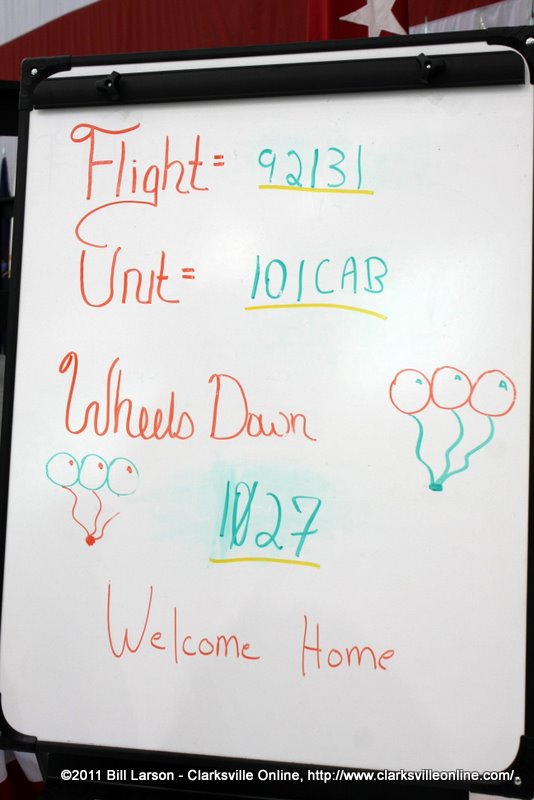 Flight= 92131
Unit= 101CAB
Wheels Down
1027
Welcome Home
©2011 Bill Larson - Clarksville Online, http://www.clarksvilleonline.com/